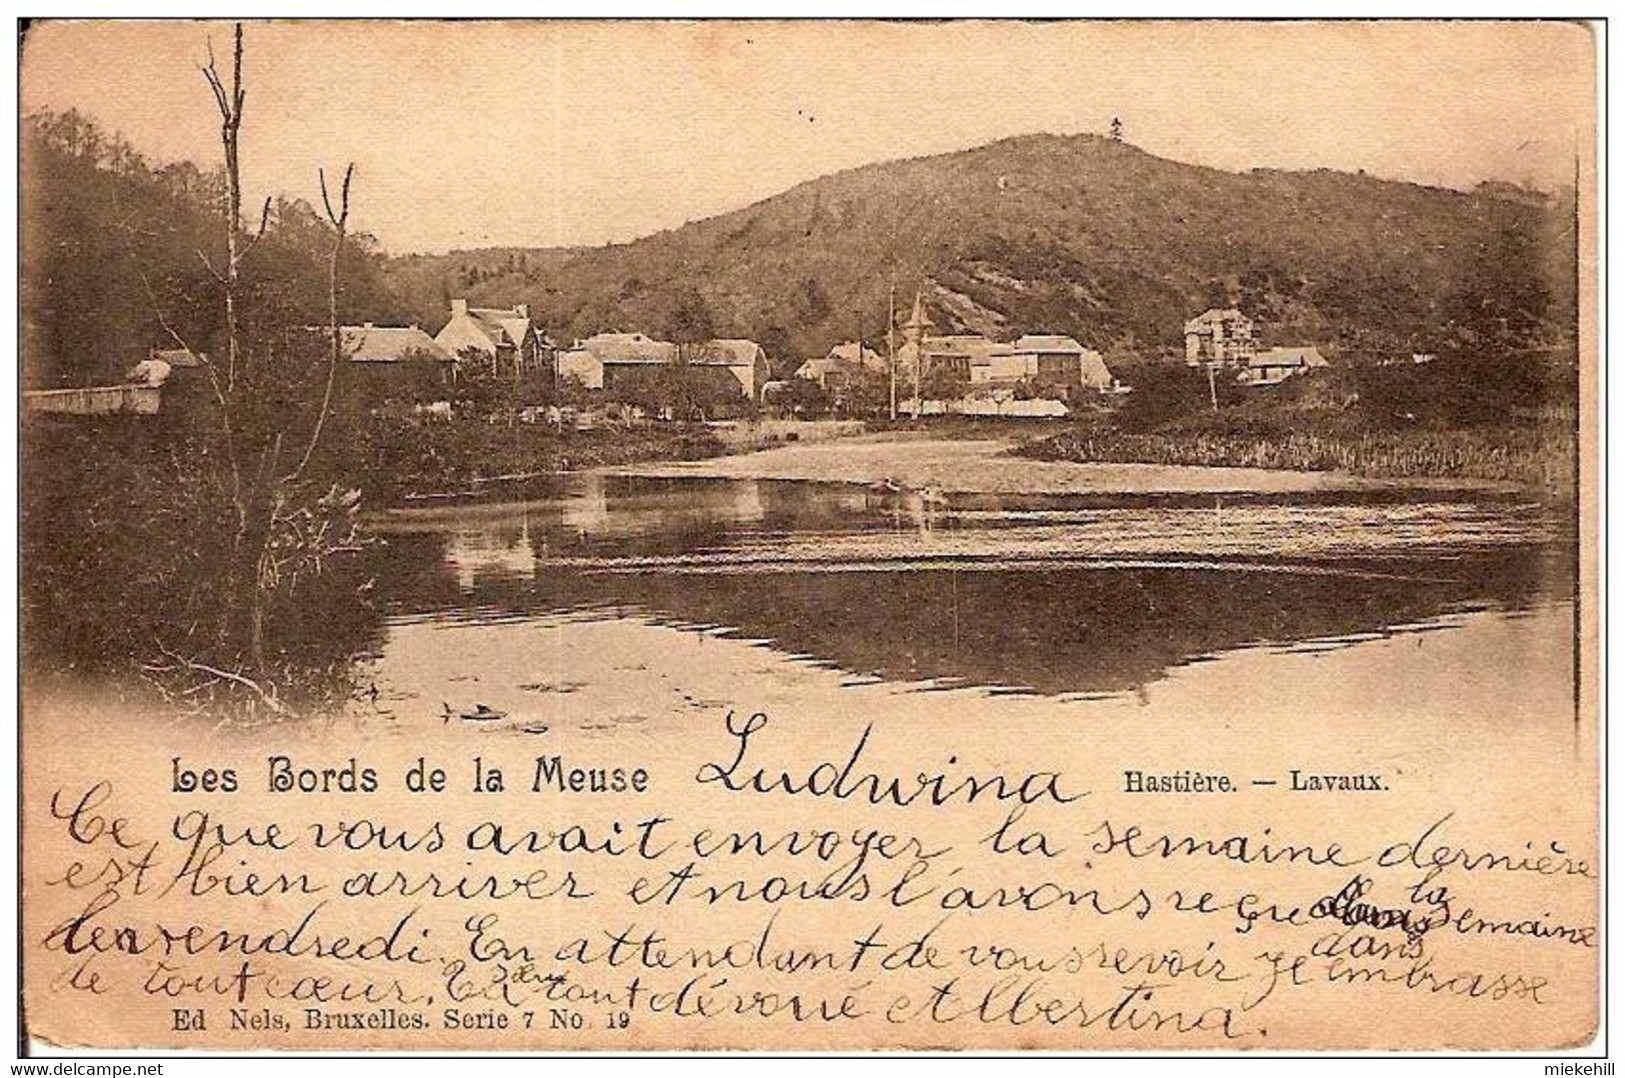 Les Bords de la Meuse Ludwina Hastière. — Lavaux.
Ce que vous avait envoyer la semaine dernière
est bien arriver et nous l'avons reçu dans la semaine
le vendredi. En attendant de vous revoir je dans embrasse
de tout cœur. Ta sœur tout dévoué Albertina.
Ed Nels, Bruxelles. Serie 7 No. 19
miekehill